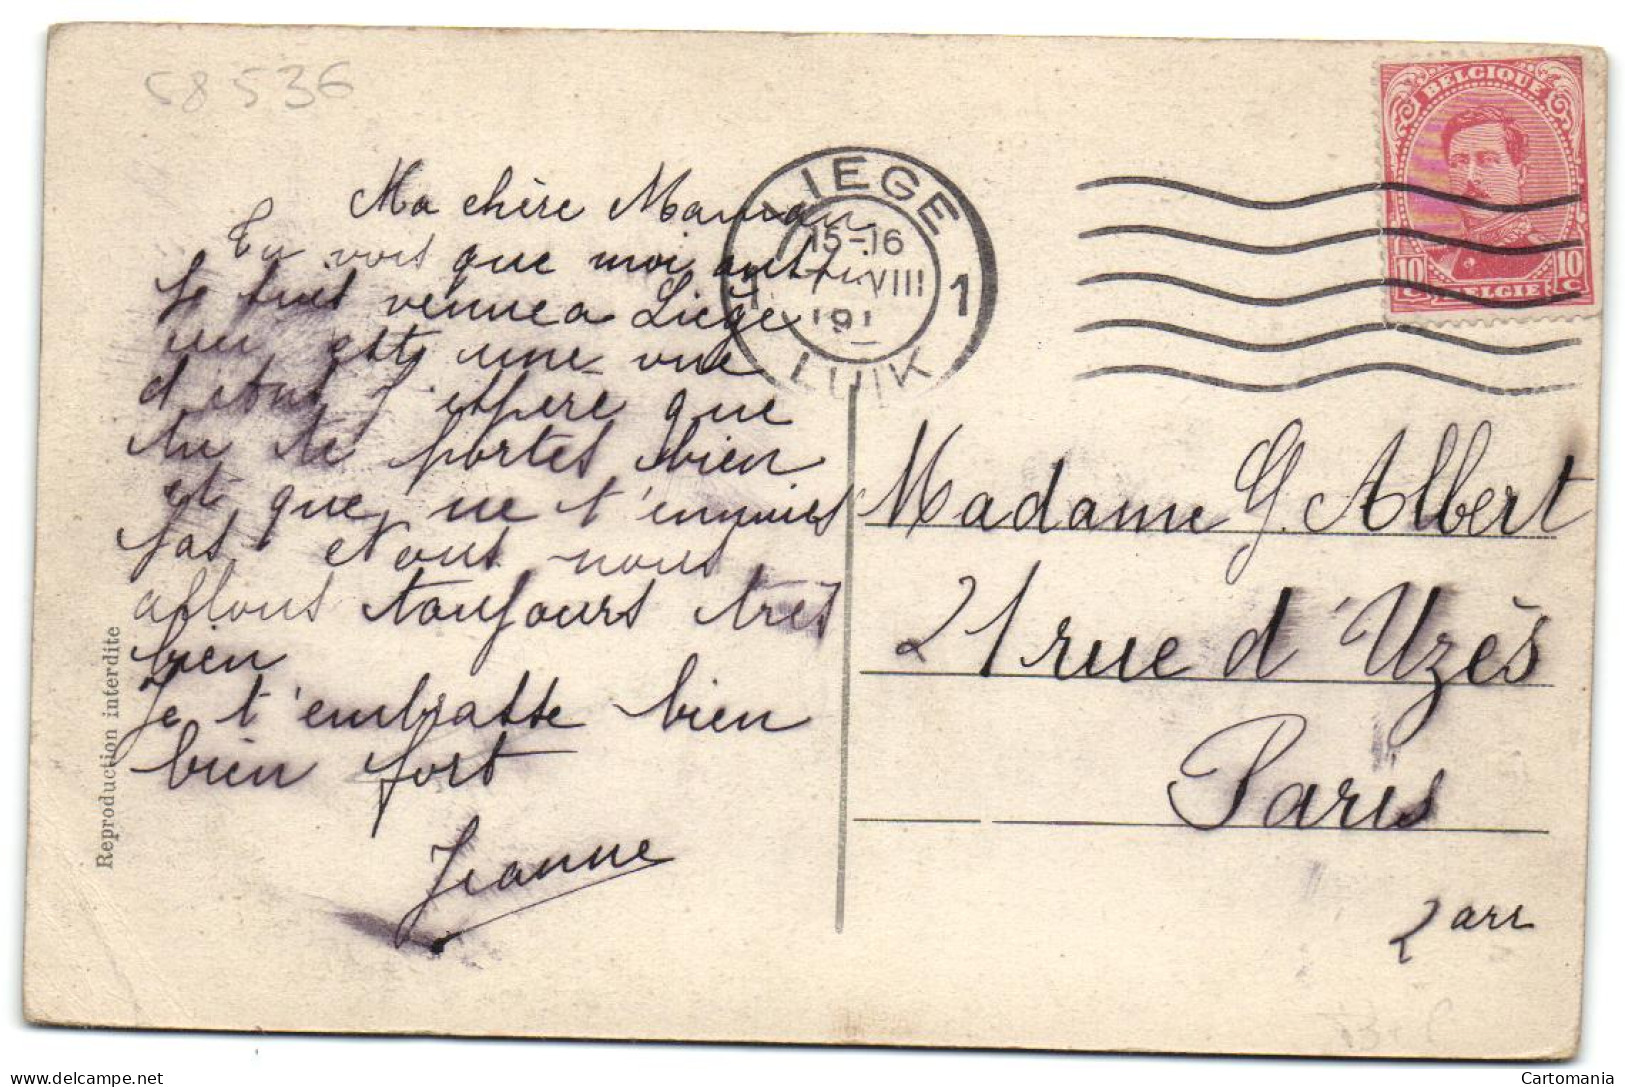 58536
Ma chère Maman
Tu vois que moi aussi
je suis venue a Liège
en est une vue
d'etus J'espere que
tu te portes bien
et que ne t'ennuies
pas Nous nous
allons toujours très
bien
Je t'embrasse bien
bien fort
Jeanne
Reproduction interdite
LIEGE 1
15-16
VIII
191
LUIK
BELGIQUE
10 c 10 c
BELGIE
Madame G. Albert
21 rue d'Uzès
Paris
2 arr
Cartomania